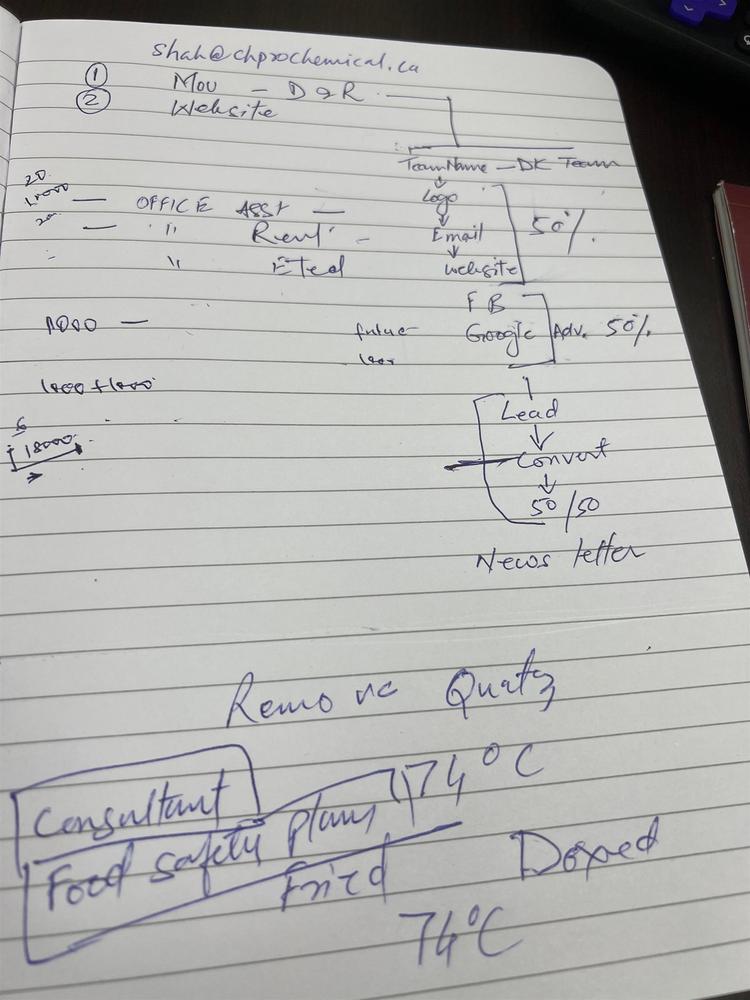 shah@chprochemical.ca
① Mou - D & R
② Website
Team Name - DK Team
20
— OFFICE ASST — Logo
— " Rent - Email 50%.
" website
FB
1000 — future Google Adv. 50%.
1000 + 1000
Lead
6
18000
Convert
50/50
News letter
Remove Quats
Consultant 74°C
Food safety plans
Fried Doxed
74°C